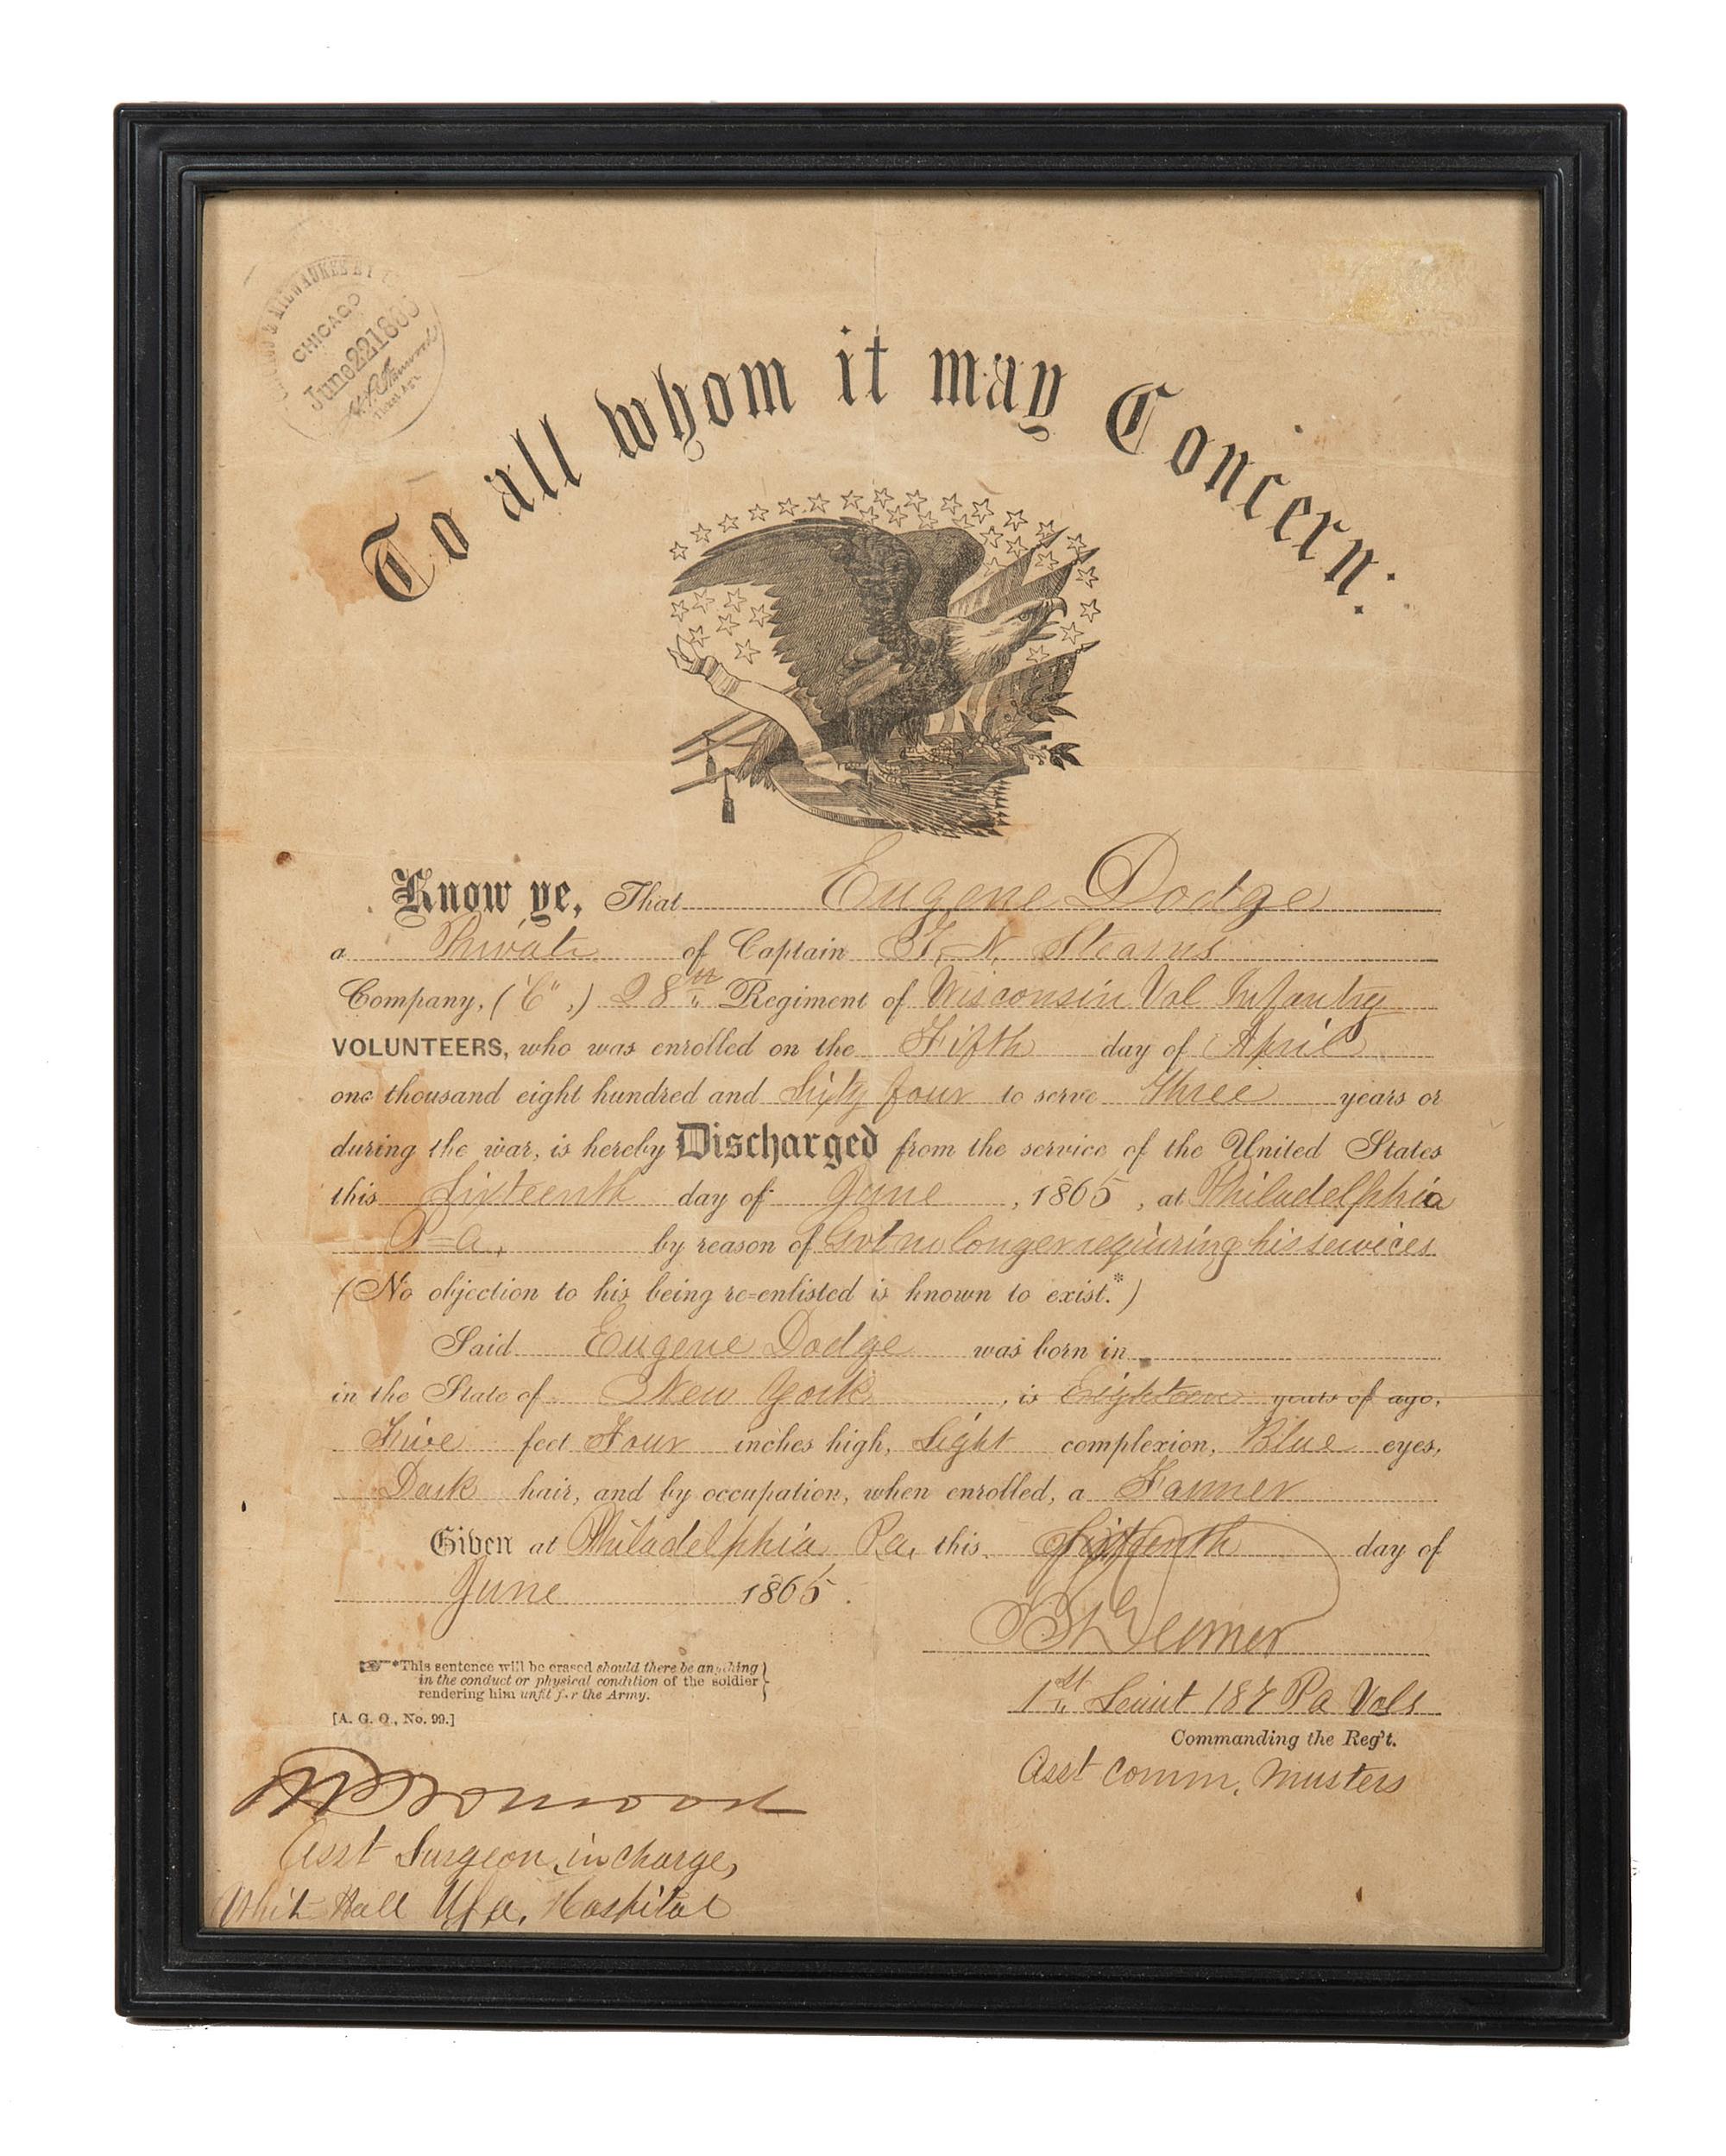 MILWAUKEE
CHICAGO
June 22 186
Ticket Agt
To all whom it may Concern:
Know ye, That Eugene Dodge
a Private of Captain T. N. Stearns
Company, ("C",) 28th Regiment of Wisconsin Vol Infantry
VOLUNTEERS, who was enrolled on the Fifth day of April
one thousand eight hundred and Sixty four to serve three years or
during the war, is hereby Discharged from the service of the United States
this Sixteenth day of June, 1865, at Philadelphia
Pa, by reason of Govt no longer requiring his services
(No objection to his being re-enlisted is known to exist.*)
Said Eugene Dodge was born in
in the State of New York, is Eighteen years of age,
Five feet Four inches high, Light complexion, Blue eyes,
Dark hair, and by occupation, when enrolled, a Farmer
Given at Philadelphia Pa, this Sixteenth day of
June 1865.
*This sentence will be erased should there be anything
in the conduct or physical condition of the soldier
rendering him unfit for the Army.
[A. G. O., No. 99.]
1st Lieut 187 Pa Vols
Commanding the Reg't.
Asst Comm. Musters
Asst Surgeon in charge,
White Hall U.S.A. Hospital